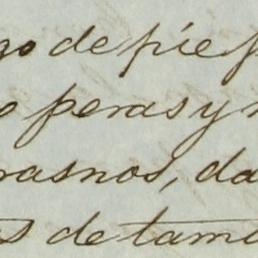 go de pie
o peras y
rasnos, da
s de tam